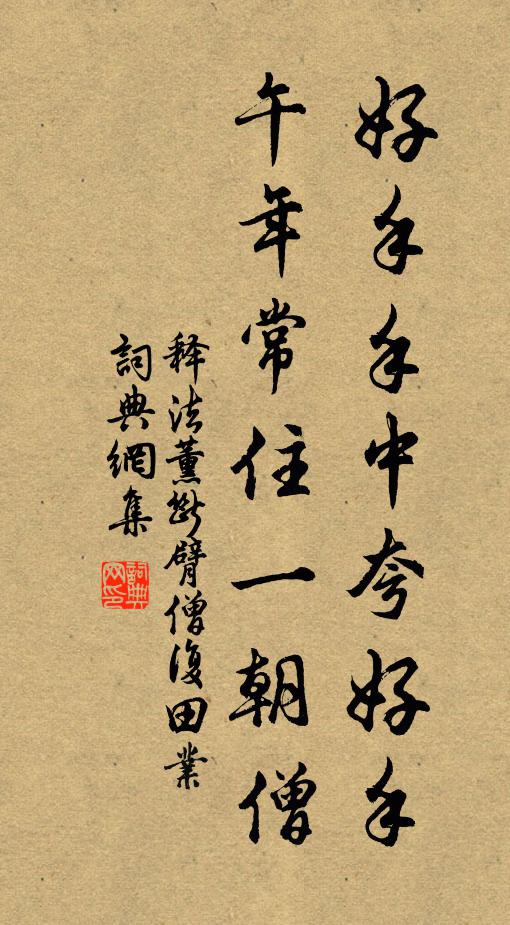 好手手中夸好手
午年常住一朝僧
释法薰断臂僧復田業
詞典網集
詞典
网印